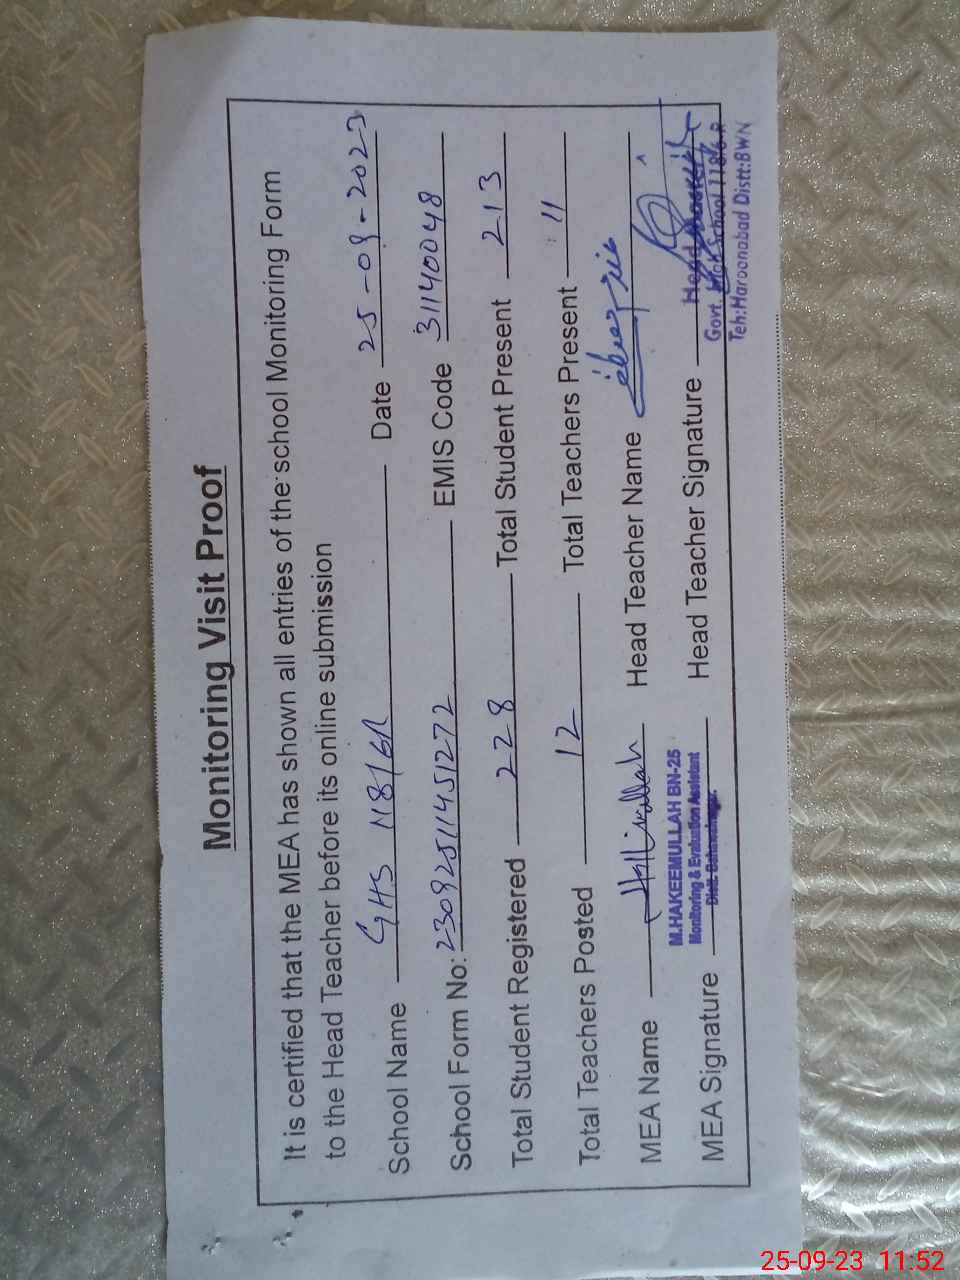 Monitoring Visit Proof
It is certified that the MEA has shown all entries of the school Monitoring Form
to the Head Teacher before its online submission
School Name GHS 118/6R Date 25-09-2023
School Form No: 23092511451272 EMIS Code 31140048
Total Student Registered 228 Total Student Present 213
Total Teachers Posted 12 Total Teachers Present 11
MEA Name Head Teacher Name
M.HAKEEMULLAH BN-25
Monitoring & Evaluation Assistant
Distt. Bahawalnagar.
MEA Signature Head Teacher Signature
Head
Govt. School 118/6.R
Teh:Haroonabad Distt:BWN
25-09-23 11:52